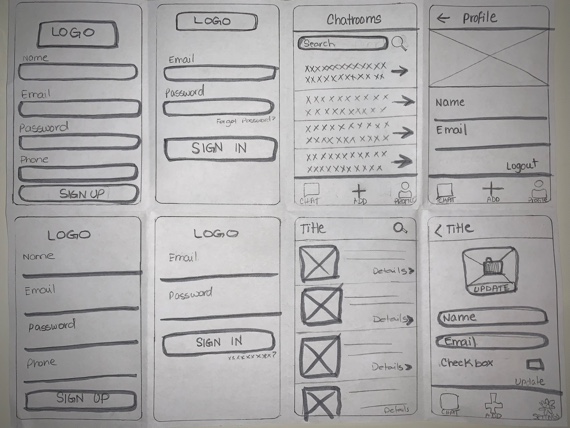 LOGO
Name
Email
Password
Phone
SIGN UP
LOGO
Email
Password
Forgot Password?
SIGN IN
Chatrooms
Search
xxxxxxxxxxx
xxxxxxxxxxx
xxxxxxxxx
xxxxxxxx
xxxxxxxxx
xxxxxxxxx
xxxxxxxxx
xxxxxxxxx
CHAT
ADD
PROFILE
Profile
Name
Email
Logout
CHAT
ADD
PROFILE
LOGO
Name
Email
Password
Phone
SIGN UP
LOGO
Email
Password
SIGN IN
xxxxxxxx?
Title
Details
Details
Details
Details
Title
UPDATE
Name
Email
Checkbox
Update
CHAT
ADD